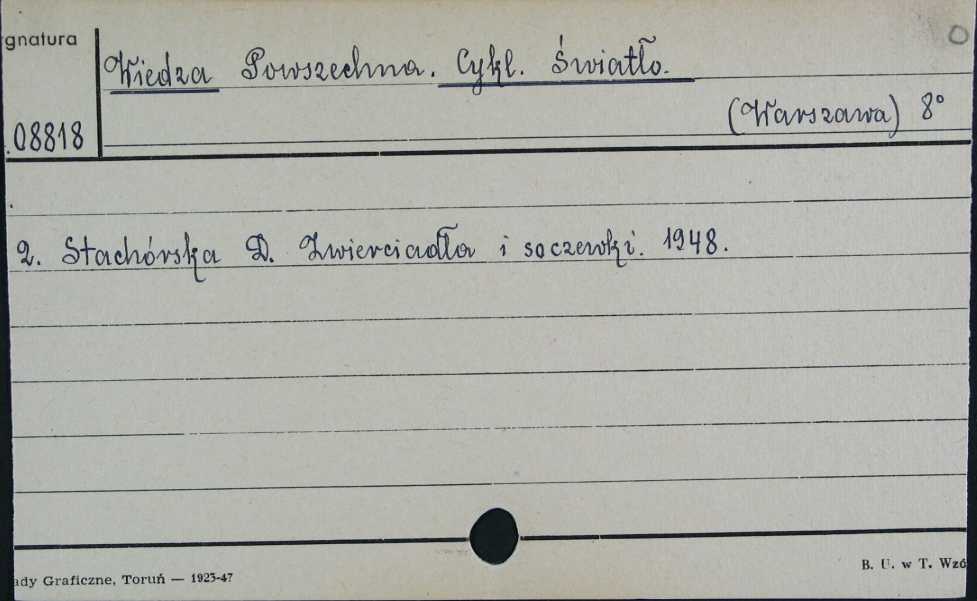 gnatura
Wiedza Powszechna. Cykl. Światło.
O
(Warszawa) 8°
.08818
2. Stachórska D. Zwierciadła i soczewki. 1948.
B. U. w T. Wzó
ady Graficzne, Toruń — 1923-47